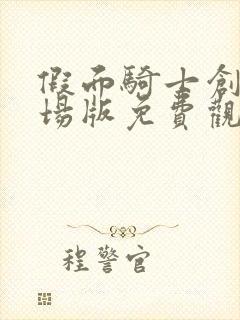 假面騎士創
場版免費觀
程警官